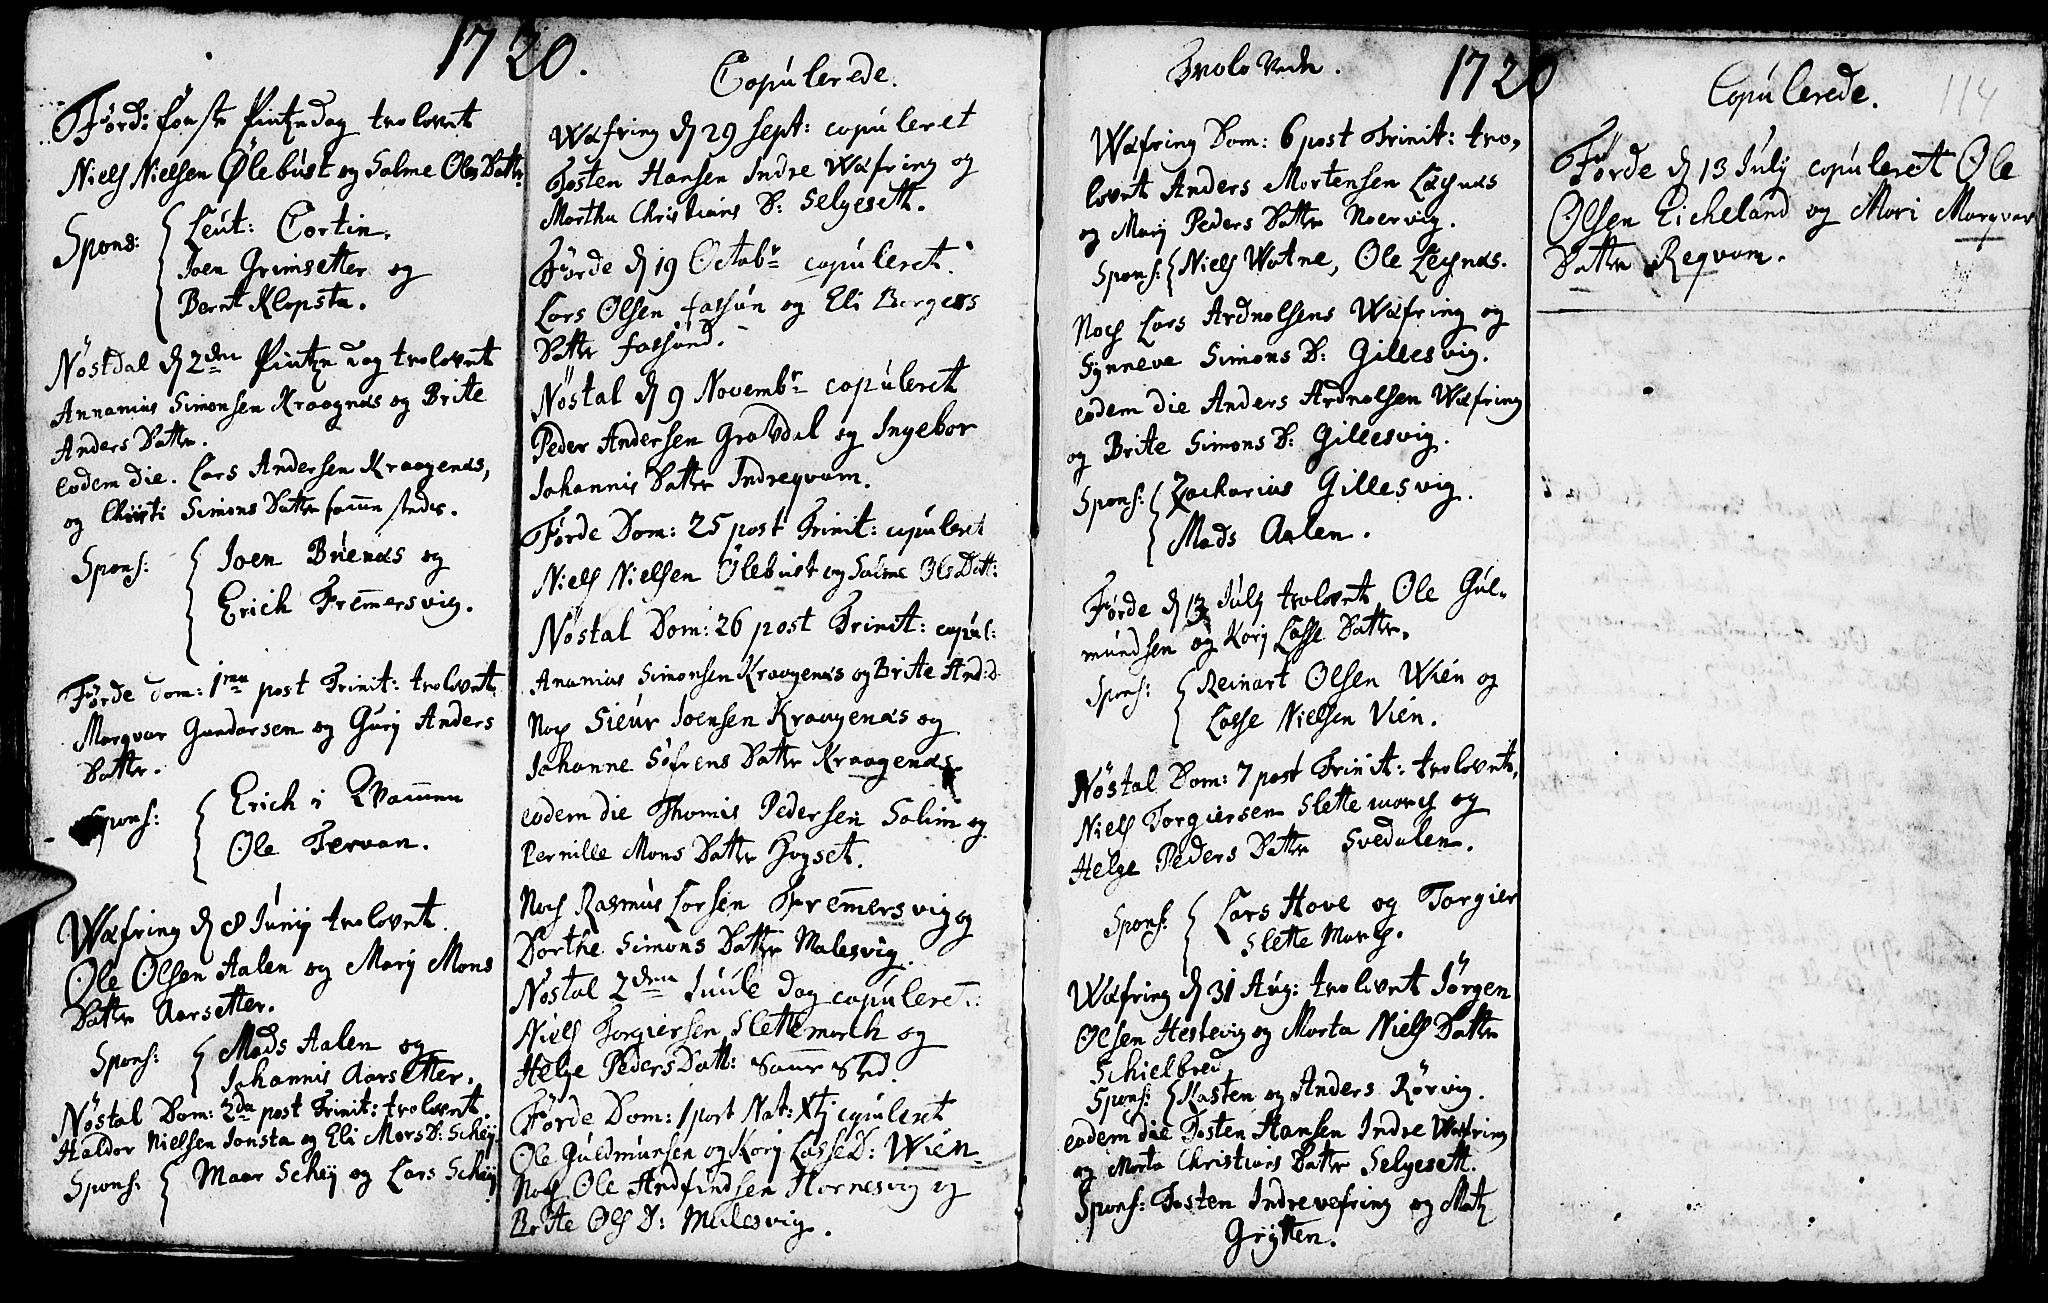 1720.
Förde förste Pintzedag trolovet
Niels Nielsen Ølebust og Salme Oles Datter
Spons: Leut: Cortin.
Joen Grimsetter og
Bernt Klopsta.
Nöstdal d 2den Pintze dag trolovet
Annanius Simonsen Kraagnæs og Brite
Anders Datter.
eodem die. Lars Andersen Kraagenæs,
og Christi Simons Datter samme steds.
Spons: Joen Buenæs og
Erich Fremersvig.
Förde Dom: 1ma post Trinit: trolovet
Marqvar Gundersen og Gurj Anders
Datter.
Spons: Erich i Qvammen
Ole Tervan.
Wæfring d 8 Junij trolovet
Ole Olsen Aalen og Marj Mons
Datter Aarsetter.
Spons: Mads Aalen og
Johannis Aarsetter.
Nöstal Dom: 2da post Trinit: trolovet.
Haldor Nielsen Jonsta og Eli Mors D: Scheij
Spons: Maar Scheij og Lars Scheij
Copulerede.
Wæfring d 29 Sept: copuleret
Tosten Hansen Indre Wæfring og
Martha Christians D: Selgesett.
Förde d 19 Octobr copuleret.
Lars Olsen fassun og Eli Borgers
Datter fassund.
Nöstal d 9 Novembr copuleret
Peder Andersen Gravdal og Ingebor
Johannis Datter Indreqvam.
Förde Dom: 25 post Trinit: copuleret
Niels Nielsen Ölebust og Salme Ols Datt:
Nöstal Dom: 26 post Trinit: copul:
Ananias Simonsen Kraagenæs og Brite And: d
Noch Sieur Joensen Kraagenæs og
Johanne Söfrens Datter Kraagenæs
eodem die Thomis Pedersen Solim og
Pernille Mons Datter Hogset.
Noch Rasmus Larsen Fremersvig og
Dorthe Simons Datter Malesvig.
Nöstal 2den Juule dag copuleret:
Niels Torgiersen Slettemarch og
Helge Peders Datt: samme Sted.
Förde Dom: 1 post Nat: Xtj copuleret
Ole Guldmunsen og Korj Lasse D: Wien
Noch Ole Andfindsen Hornesvig og
Brite Ols D: Mulesvig.
Trolovede.
1720
Wæfring Dom: 6 post Trinit: tro,
lovet Anders Mortensen Læsnæs
og Marj Peders Datter Noervig.
Spons: Niels Watne, Ole Leisnæs.
Noch Lars Ardnolsens Wæfring og
Synneve Simons D: Gillesvig.
eodem die Anders Ardnolsen Wæfring
og Brite Simons D: Gillesvig.
Spons: Zacharius Gillesvig.
Mads Aalen.
Förde d 13 Julj trolovet Ole Gul-
mundsen og Korj Lasse Datter.
Spons: Reinart Olsen Wien og
Lasse Nielsen Vien.
Nöstal Dom: 7 post Trinit: trolovet,
Niels Torgiersen Slettemarch og
Helge Peders Datter Svedalen.
Spons: Lars Hove og Torgier
Slette March.
Wæfring d 31 Aug: trolovet Jörgen
Olsen Hestevig og Morta Niels Datter
Schielbred
Spons: Kasten og Anders Rörvig.
eodem die Tosten Hansen Indre Wæfring
og Morta Christians Datter Selgesett.
Spons: Tosten Indrevefring og Matz
Grytten.
Copulerede.
114
Förde d 13 Julij copuleret Ole
Olsen Eicheland og Mari Marqvar
Datter Reqvam.